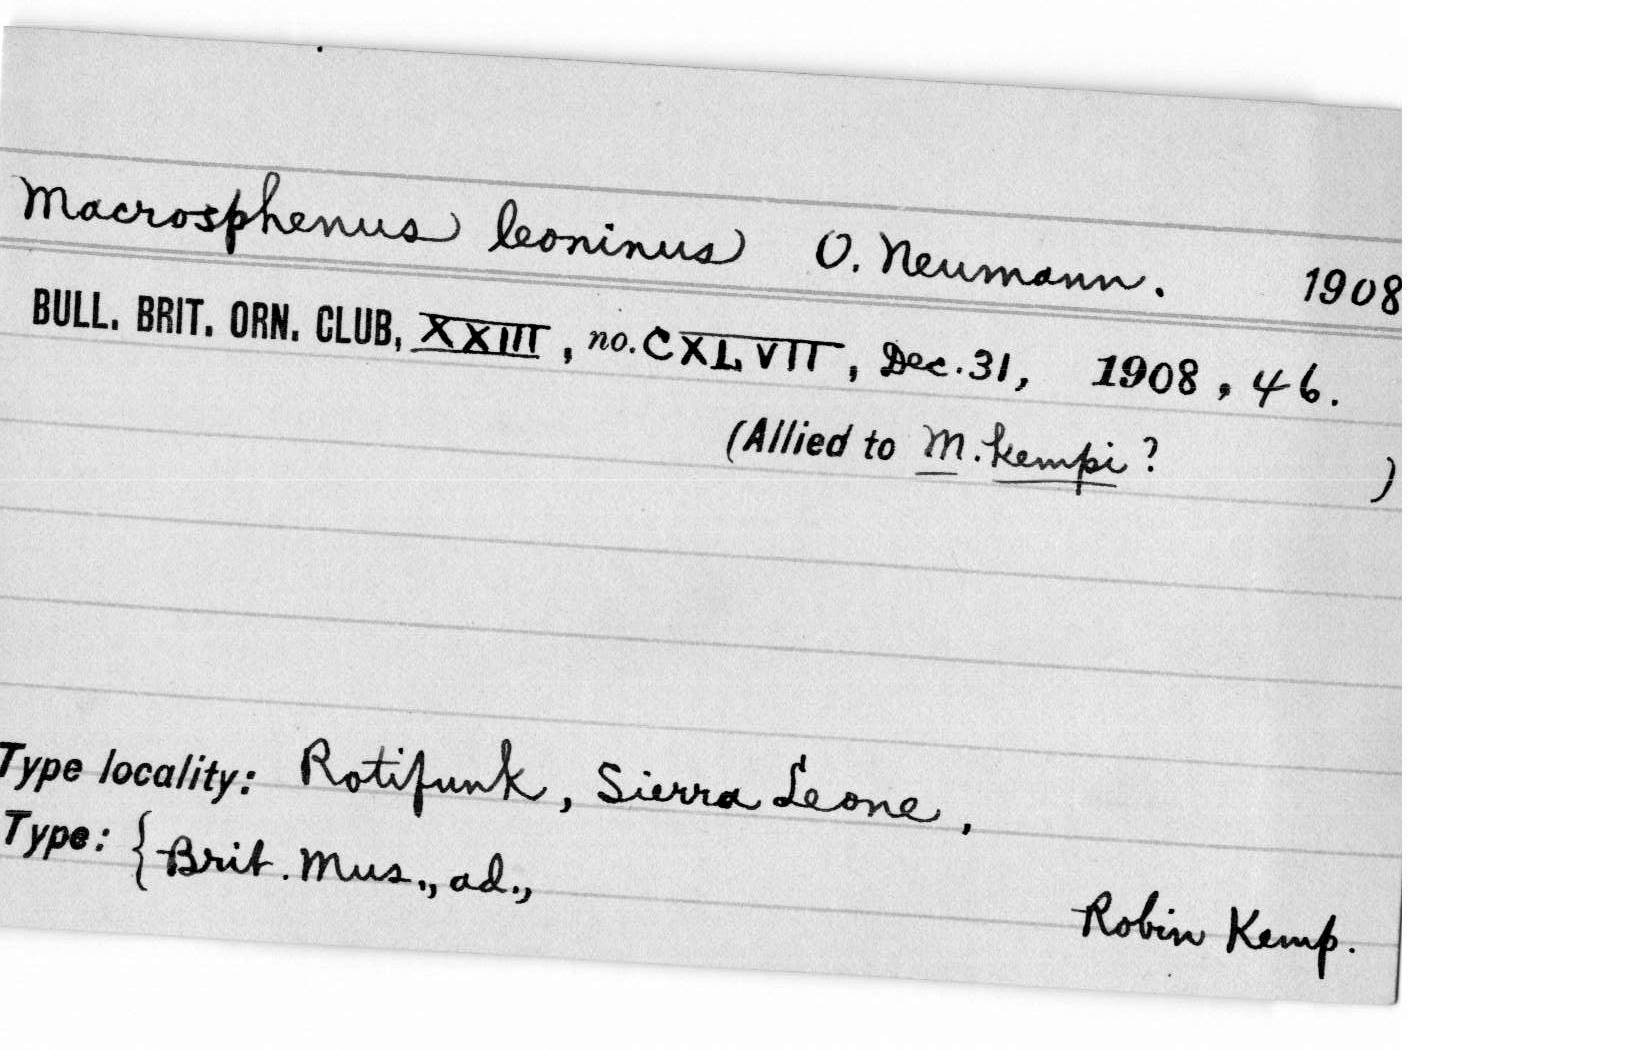 Macrosphenus leoninus O. Neumann. 1908
BULL. BRIT. ORN. CLUB, XXIII, no. CXLVII, Dec. 31, 1908, 46.
(Allied to M. kempi? )
Type locality: Rotifunk, Sierra Leone,
Type: {Brit. Mus., ad.,
Robin Kemp.